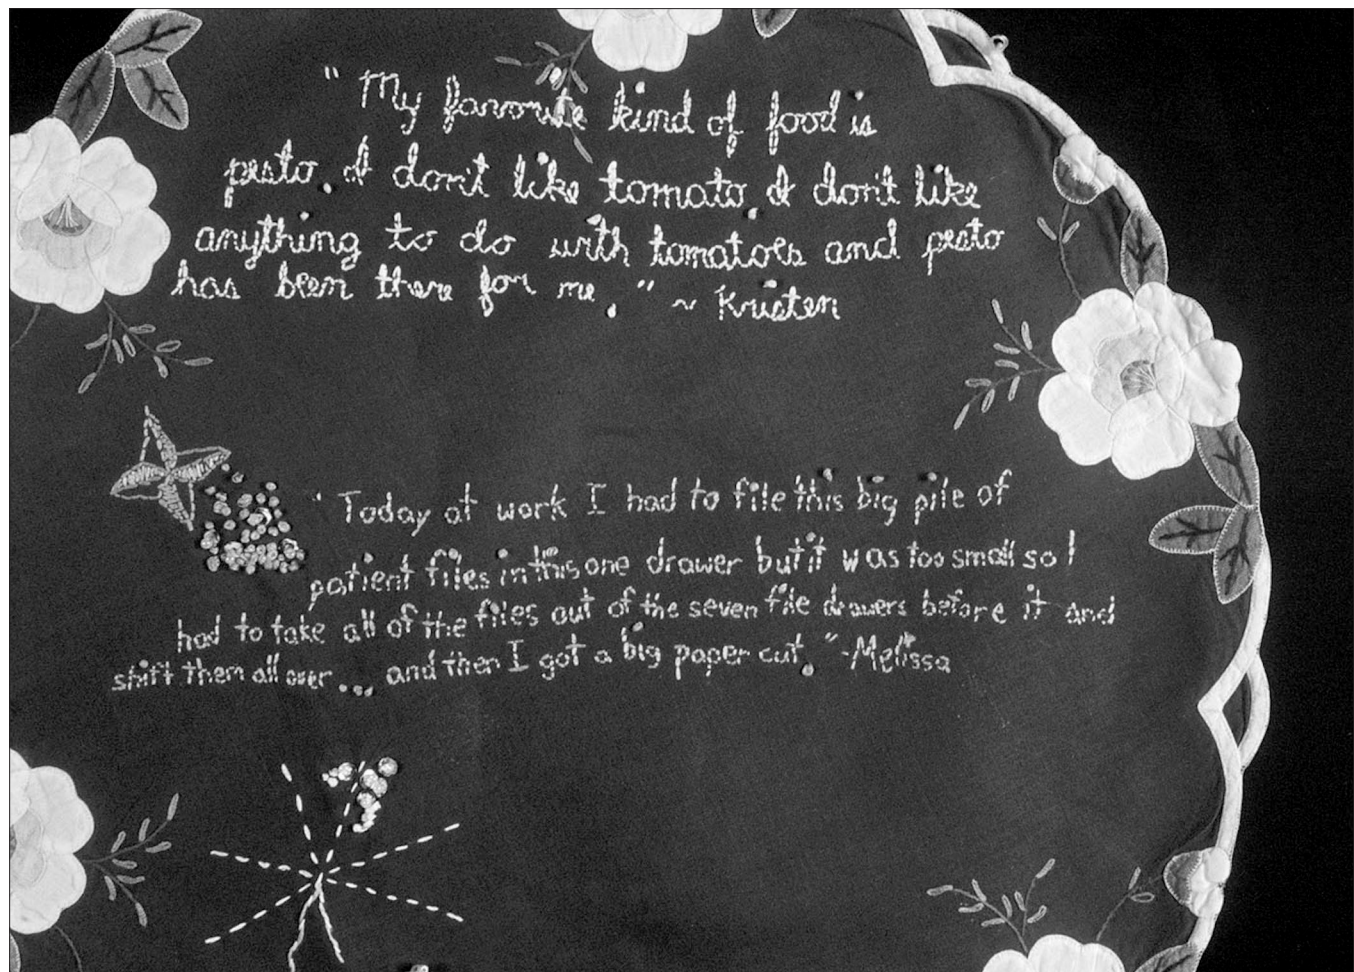 "My favorite kind of food is
pesto. I don't like tomato. I don't like
anything to do with tomatoes and pesto
has been there for me." ~ Kristen
' Today at work I had to file this big pile of
patient files in this one drawer but it was too small so I
had to take all of the files out of the seven file drawers before it and
shift them all over ... and then I got a big paper cut." -Melissa